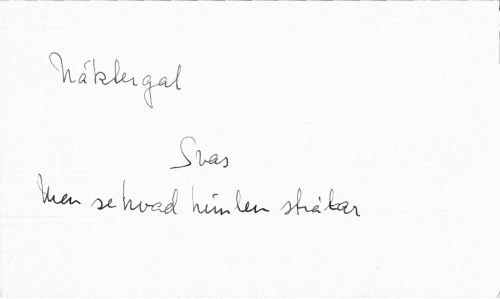 Näktergal
Svas
Men se hvad himlen strålar